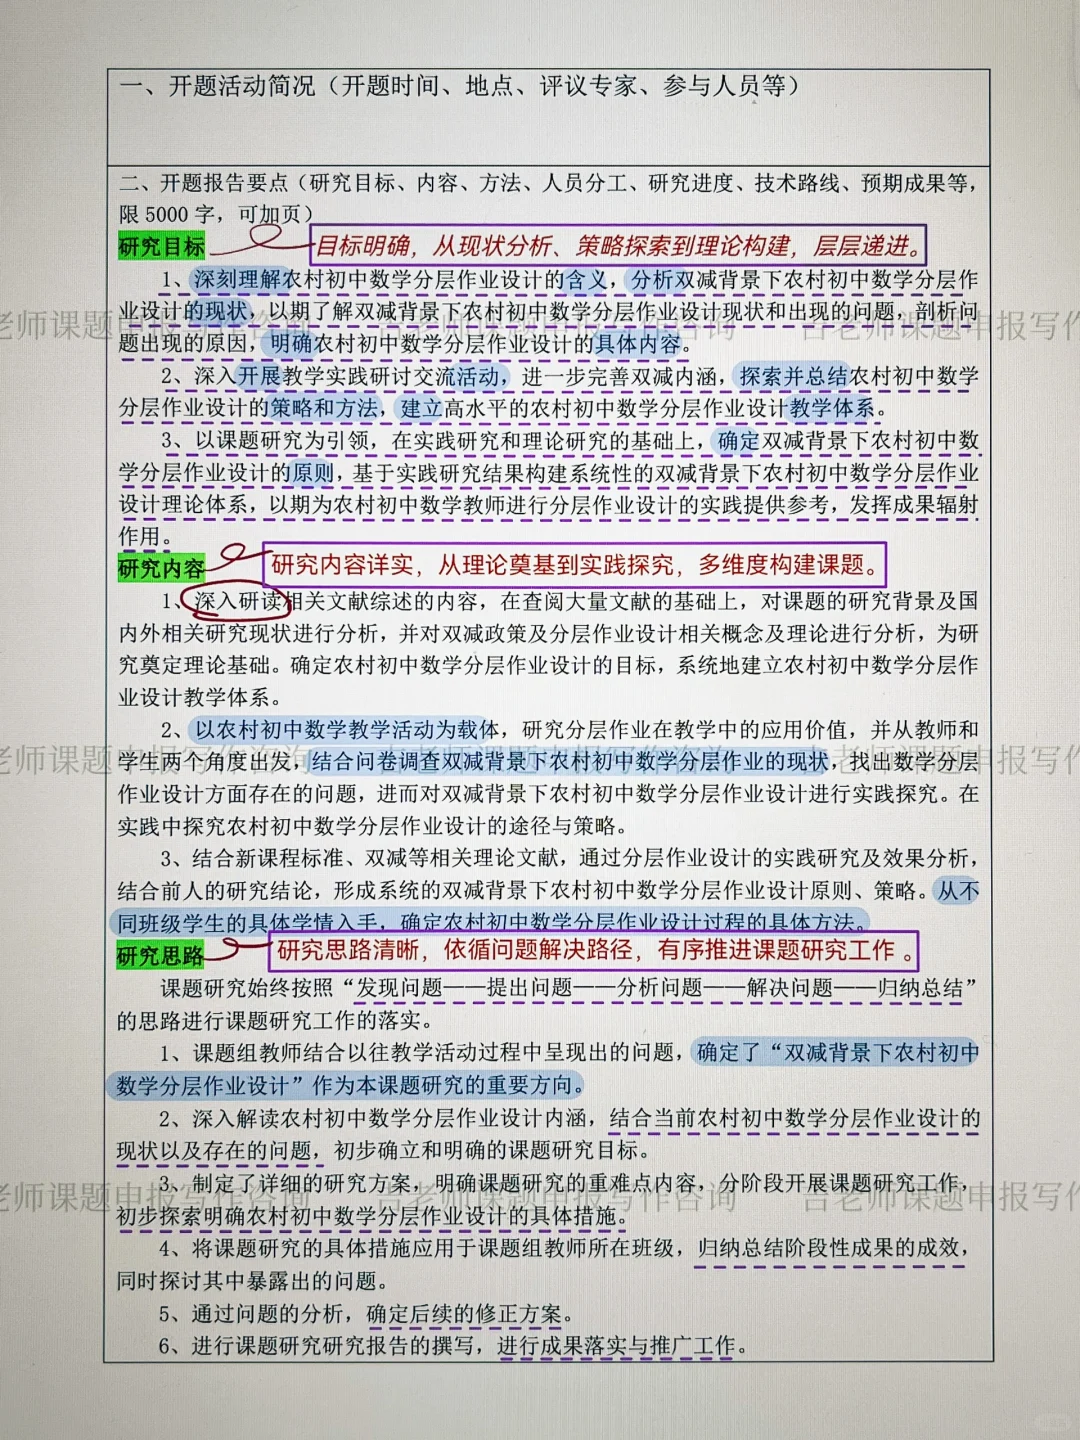 一、开题活动简况（开题时间、地点、评议专家、参与人员等）
二、开题报告要点（研究目标、内容、方法、人员分工、研究进度、技术路线、预期成果等，
限 5000 字，可加页）
研究目标
目标明确，从现状分析、策略探索到理论构建，层层递进。
1、深刻理解农村初中数学分层作业设计的含义，分析双减背景下农村初中数学分层作
业设计的现状，以期了解双减背景下农村初中数学分层作业设计现状和出现的问题，剖析问
老师课题申报写作咨询 吉老师课题申报写作咨询 吉老师课题申报写作
题出现的原因，明确农村初中数学分层作业设计的具体内容。
2、深入开展教学实践研讨交流活动，进一步完善双减内涵，探索并总结农村初中数学
分层作业设计的策略和方法，建立高水平的农村初中数学分层作业设计教学体系。
3、以课题研究为引领，在实践研究和理论研究的基础上，确定双减背景下农村初中数
学分层作业设计的原则，基于实践研究结果构建系统性的双减背景下农村初中数学分层作业
设计理论体系，以期为农村初中数学教师进行分层作业设计的实践提供参考，发挥成果辐射
作用。
研究内容
研究内容详实，从理论奠基到实践探究，多维度构建课题。
1、深入研读相关文献综述的内容，在查阅大量文献的基础上，对课题的研究背景及国
内外相关研究现状进行分析，并对双减政策及分层作业设计相关概念及理论进行分析，为研
究奠定理论基础。确定农村初中数学分层作业设计的目标，系统地建立农村初中数学分层作
业设计教学体系。
2、以农村初中数学教学活动为载体，研究分层作业在教学中的应用价值，并从教师和
学生两个角度出发，结合问卷调查双减背景下农村初中数学分层作业的现状，找出数学分层
老师课题申报写作咨询 吉老师课题申报写作咨询 吉老师课题申报写作
作业设计方面存在的问题，进而对双减背景下农村初中数学分层作业设计进行实践探究。在
实践中探究农村初中数学分层作业设计的途径与策略。
3、结合新课程标准、双减等相关理论文献，通过分层作业设计的实践研究及效果分析，
结合前人的研究结论，形成系统的双减背景下农村初中数学分层作业设计原则、策略。从不
同班级学生的具体学情入手，确定农村初中数学分层作业设计过程的具体方法。
研究思路
研究思路清晰，依循问题解决路径，有序推进课题研究工作 。
课题研究始终按照“发现问题——提出问题——分析问题——解决问题——归纳总结”
的思路进行课题研究工作的落实。
1、课题组教师结合以往教学活动过程中呈现出的问题，确定了“双减背景下农村初中
数学分层作业设计”作为本课题研究的重要方向。
2、深入解读农村初中数学分层作业设计内涵，结合当前农村初中数学分层作业设计的
现状以及存在的问题，初步确立和明确的课题研究目标。
3、制定了详细的研究方案，明确课题研究的重难点内容，分阶段开展课题研究工作，
老师课题申报写作咨询 吉老师课题申报写作咨询 吉老师课题申报写作
初步探索明确农村初中数学分层作业设计的具体措施。
4、将课题研究的具体措施应用于课题组教师所在班级，归纳总结阶段性成果的成效，
同时探讨其中暴露出的问题。
5、通过问题的分析，确定后续的修正方案。
6、进行课题研究研究报告的撰写，进行成果落实与推广工作。